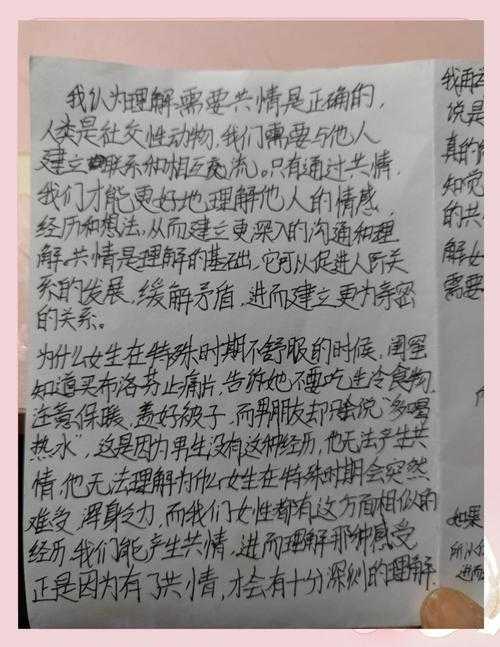 我认为理解需要共情是正确的，
人类是社交性动物，我们需要与他人
建立联系和相互交流。只有通过共情，
我们才能更好地理解他人的情感，
经历和想法，从而建立更深入的沟通和理
解。共情是理解的基础，它可以促进人际关
系的发展，缓解矛盾，进而建立更为亲密
的关系。
为什么女生在特殊时期不舒服的时候，闺蜜
知道买布洛芬止痛片，告诉她不要吃生冷食物，
注意保暖，盖好被子，而男朋友却只会说“多喝
热水”，这是因为男生没有这种经历，他无法产生共
情，他无法理解为什么女生在特殊时期会突然
难受，浑身乏力，而我们女性都有这方面相似的
经历，我们能产生共情，进而理解那种感受
正是因为有了共情，才会有十分深刻的理解.
我再
说是
真的
知觉
的共
解女
需要
如果
所以
进而